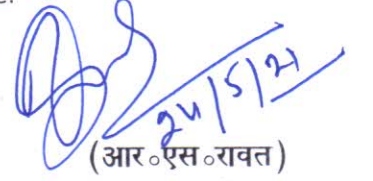 24/5/21
(आर०एस०रावत)